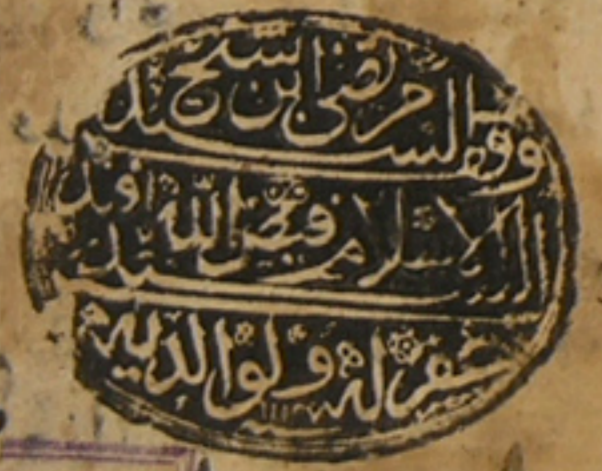 وقف السيد مرتضى ابن شيخ
الاسلام السيد فيض الله افندى
غفر له ولوالديه